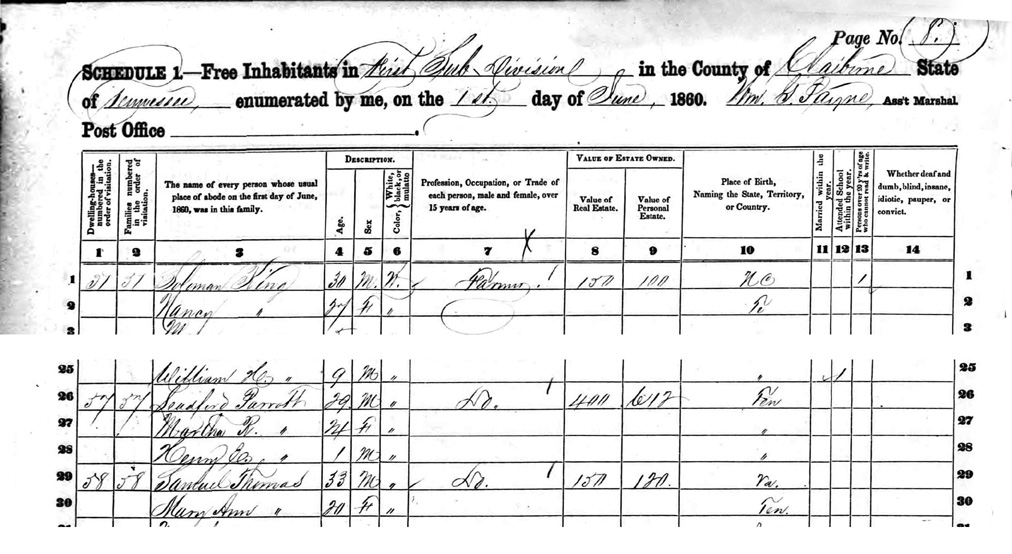 Page No. 8.
SCHEDULE 1.—Free Inhabitants in First Sub-Division in the County of Claiborne State
of Tennessee, enumerated by me, on the 1st. day of June, 1860. Wm. Payne, Ass't Marshal
Post Office
Dwelling-houses—numbered in the order of visitation.
Families numbered in the order of visitation.
The name of every person whose usual place of abode on the first day of June, 1860, was in this family.
DESCRIPTION.
Age.
Sex
Color, White, black, or mulatto
Profession, Occupation, or Trade of each person, male and female, over 15 years of age.
VALUE OF ESTATE OWNED.
Value of Real Estate.
Value of Personal Estate.
Place of Birth, Naming the State, Territory, or Country.
Married within the year.
Attended School within the year.
Persons over 20 y'rs of age who cannot read & write.
Whether deaf and dumb, blind, insane, idiotic, pauper, or convict.
1 2 3 4 5 6 7 8 9 10 11 12 13 14
1 51 51 Soloman King 30 M. W. Farmer. 1 150 100 NC 1 1
2 Nancy " 27 F " 2
3 3
25 William H. " 9 M " " 1 25
26 57 57 Parrott 29 M " Do. 1 400 612 Ten 26
27 Martha R. " 24 F " " 27
28 Henry " 1 M " " 28
29 58 58 Samuel Thomas 33 M " Do. 1 150 120. Va. 29
30 Mary Ann " 20 F " Ten. 30